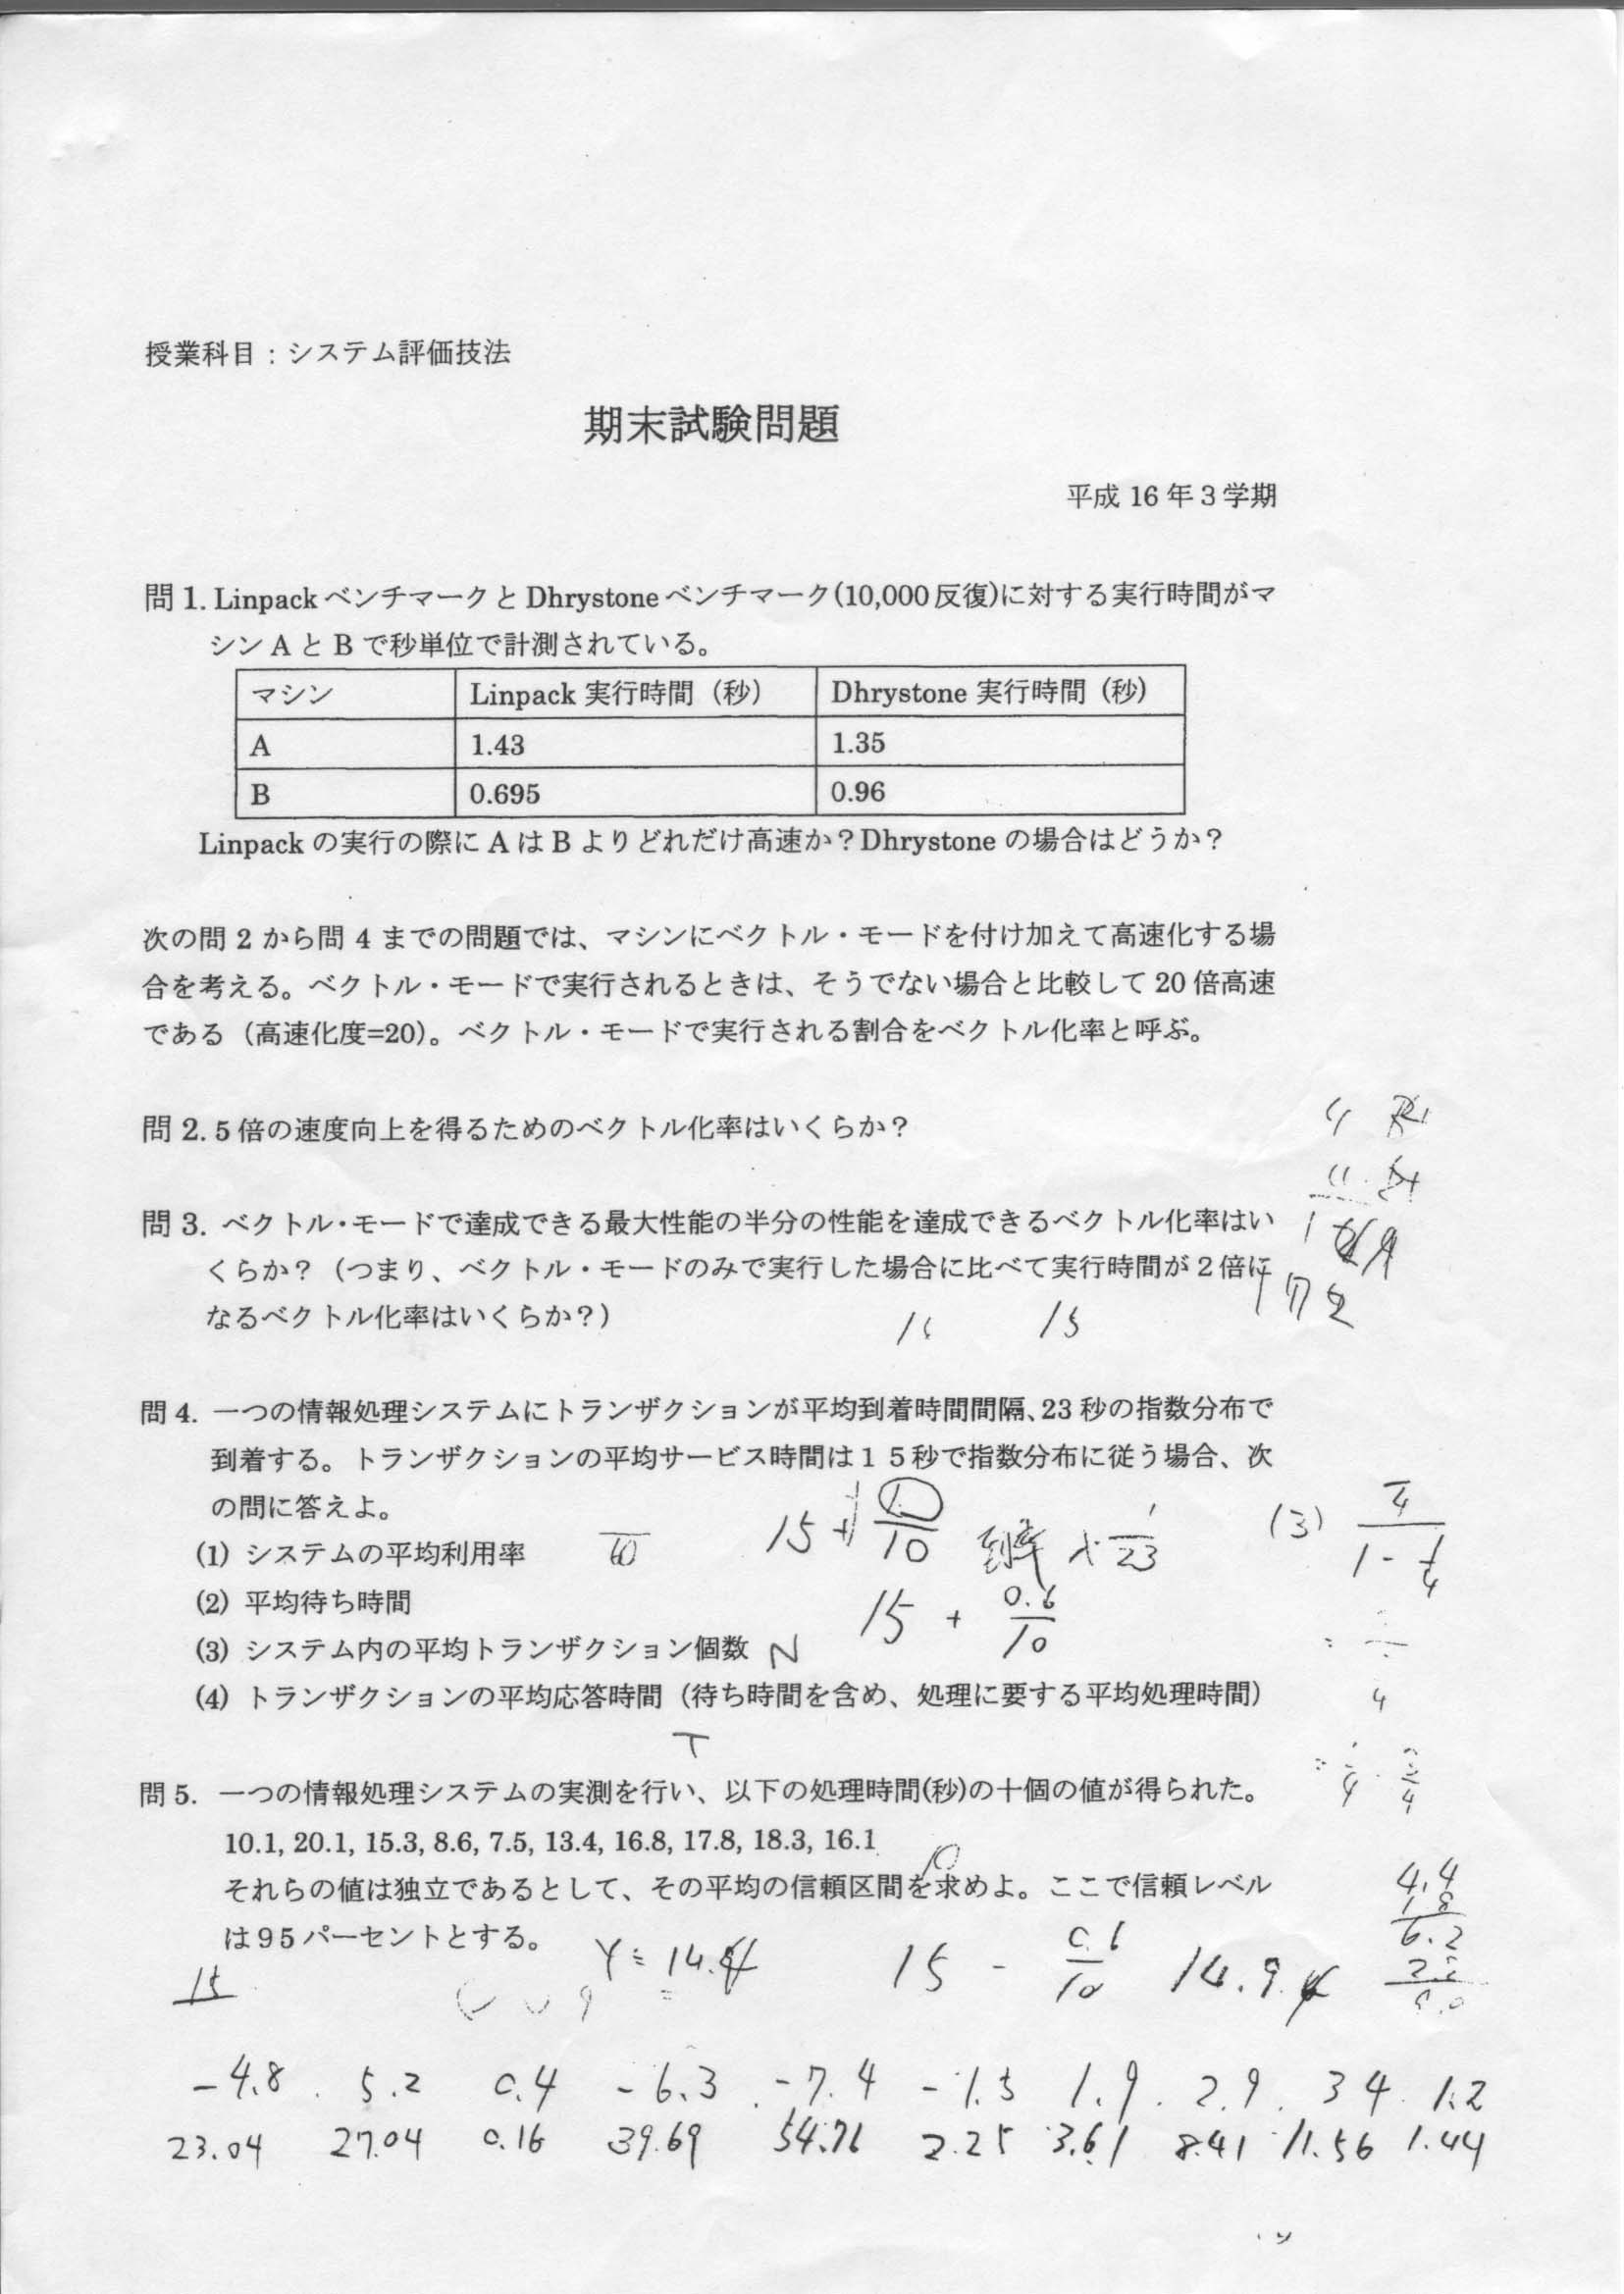 授業科目：システム評価技法
期末試験問題
平成 16 年 3 学期
問 1. Linpack ベンチマークと Dhrystone ベンチマーク(10,000 反復)に対する実行時間がマ
シン A と B で秒単位で計測されている。
マシン Linpack 実行時間（秒） Dhrystone 実行時間（秒）
A 1.43 1.35
B 0.695 0.96
Linpack の実行の際に A は B よりどれだけ高速か？Dhrystone の場合はどうか？
次の問 2 から問 4 までの問題では、マシンにベクトル・モードを付け加えて高速化する場
合を考える。ベクトル・モードで実行されるときは、そうでない場合と比較して 20 倍高速
である（高速化度=20)。ベクトル・モードで実行される割合をベクトル化率と呼ぶ。
問 2. 5 倍の速度向上を得るためのベクトル化率はいくらか？
問 3. ベクトル・モードで達成できる最大性能の半分の性能を達成できるベクトル化率はい
くらか？（つまり、ベクトル・モードのみで実行した場合に比べて実行時間が 2 倍に
なるベクトル化率はいくらか？）
15
問 4. 一つの情報処理システムにトランザクションが平均到着時間間隔、23 秒の指数分布で
到着する。トランザクションの平均サービス時間は１５秒で指数分布に従う場合、次
の問に答えよ。
(1) システムの平均利用率
(2) 平均待ち時間
15 + 0.6/10
(3) システム内の平均トランザクション個数 N
(4) トランザクションの平均応答時間（待ち時間を含め、処理に要する平均処理時間）
T
問 5. 一つの情報処理システムの実測を行い、以下の処理時間(秒)の十個の値が得られた。
10.1, 20.1, 15.3, 8.6, 7.5, 13.4, 16.8, 17.8, 18.3, 16.1
10
それらの値は独立であるとして、その平均の信頼区間を求めよ。ここで信頼レベル
は９５パーセントとする。
4.4
1.8
6.2
15
15 - 0.6/10 14.9
-4.8 5.2 0.4 -6.3 -7.4 -1.5 1.9 2.9 3.4 1.2
23.04 27.04 0.16 39.69 54.76 2.25 3.61 8.41 11.56 1.44